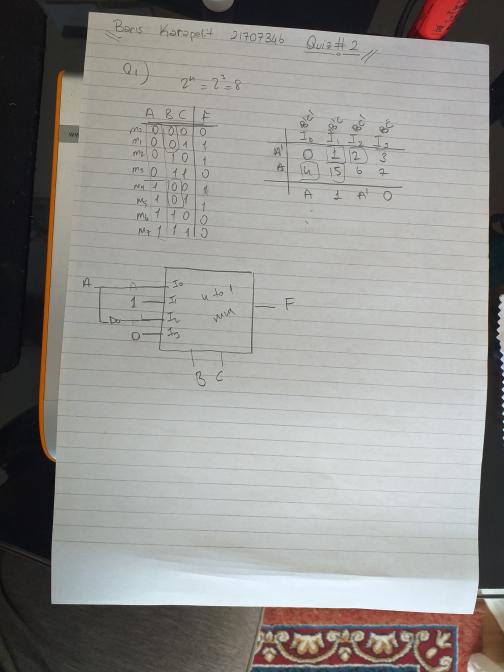 Baris Karapelit 21707346 Quiz # 2
Q1)
2ⁿ = 2³ = 8
A B C F
m0 0 0 0 0
m1 0 0 1 1
m2 0 1 0 1
m3 0 1 1 0
m4 1 0 0 1
m5 1 0 1 1
m6 1 1 0 0
m7 1 1 1 0
B'C' B'C BC' BC
I0 I1 I2 I3
A' 0 1 2 3
A 4 5 6 7
A 1 A' 0
A I0 4 to 1
1 I1 F
I2
0 I3
B C